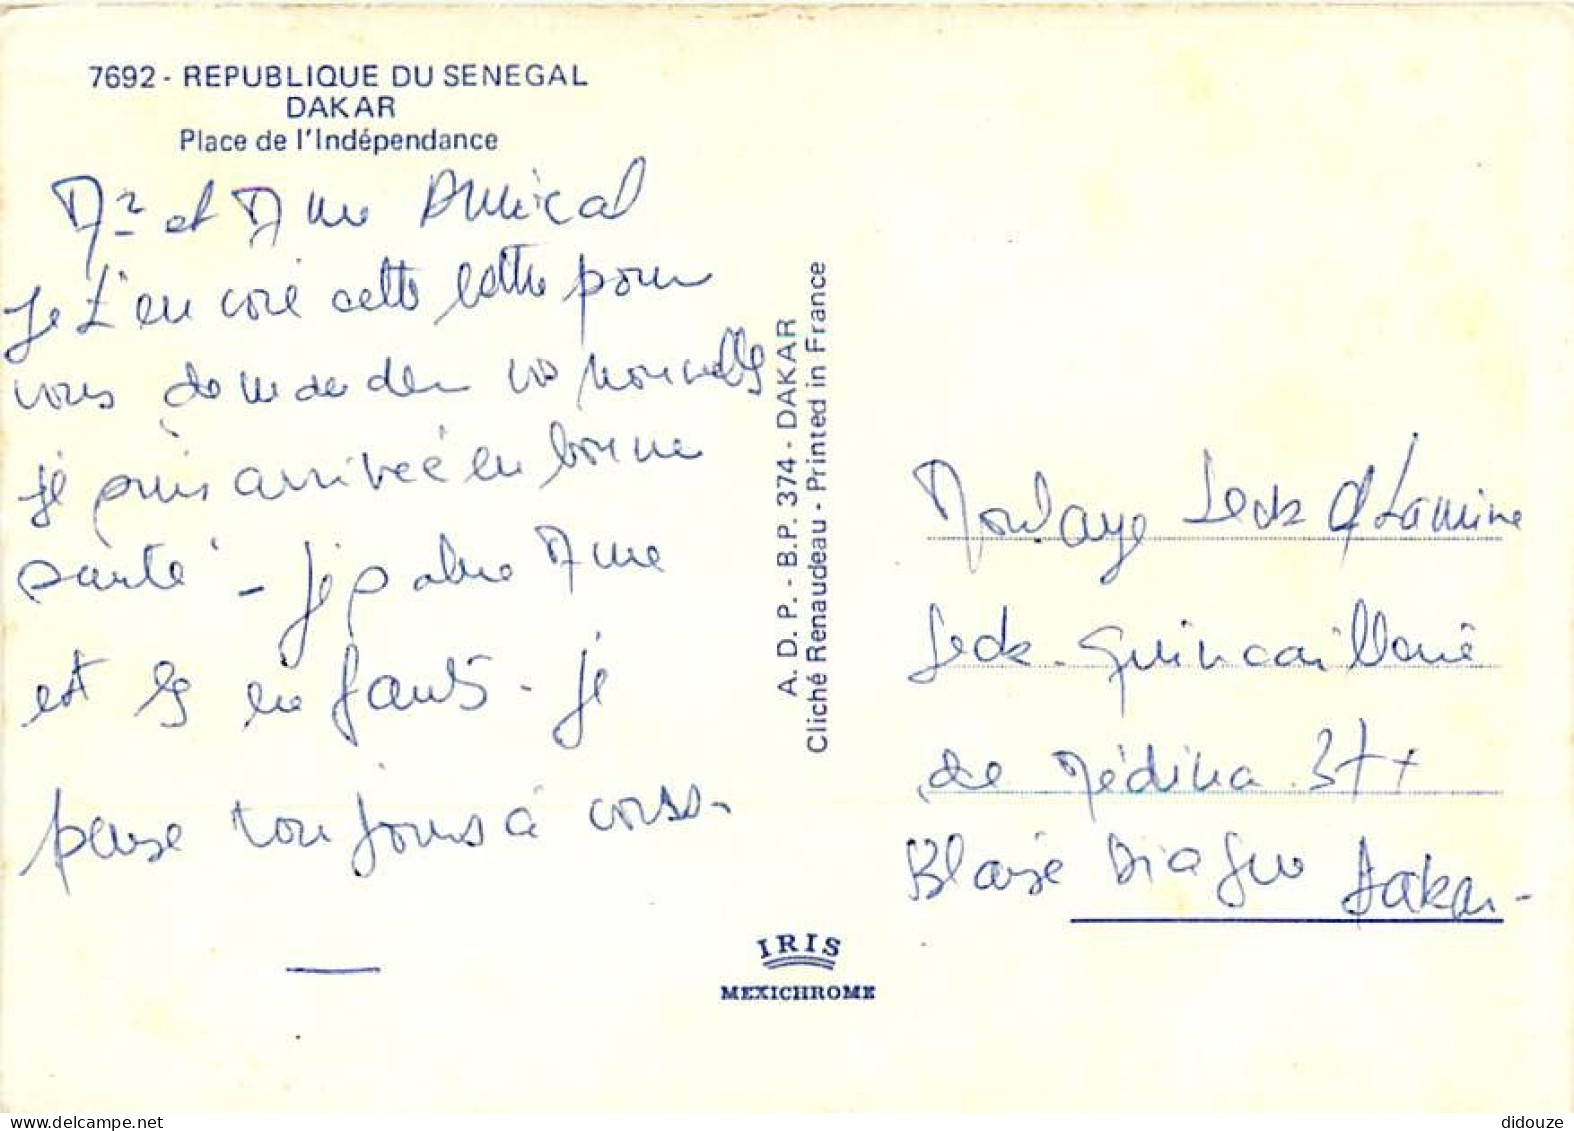 7692 - REPUBLIQUE DU SENEGAL
DAKAR
Place de l'Indépendance
Mr et Mme Amical
Je t'en voie cette lettre pour
vous demander vos nouvelles
je suis arrivée en bonne
santé - Je salue Mme
et les enfants - Je
pense toujours à vous -
A. D. P. - B.P. 374 - DAKAR
Cliché Renaudeau - Printed in France
IRIS
MEXICHROME
Moulaye Seck Lamine
Seck - Quincaillerie
de Médina
Blaise Diagne Dakar -
didouze